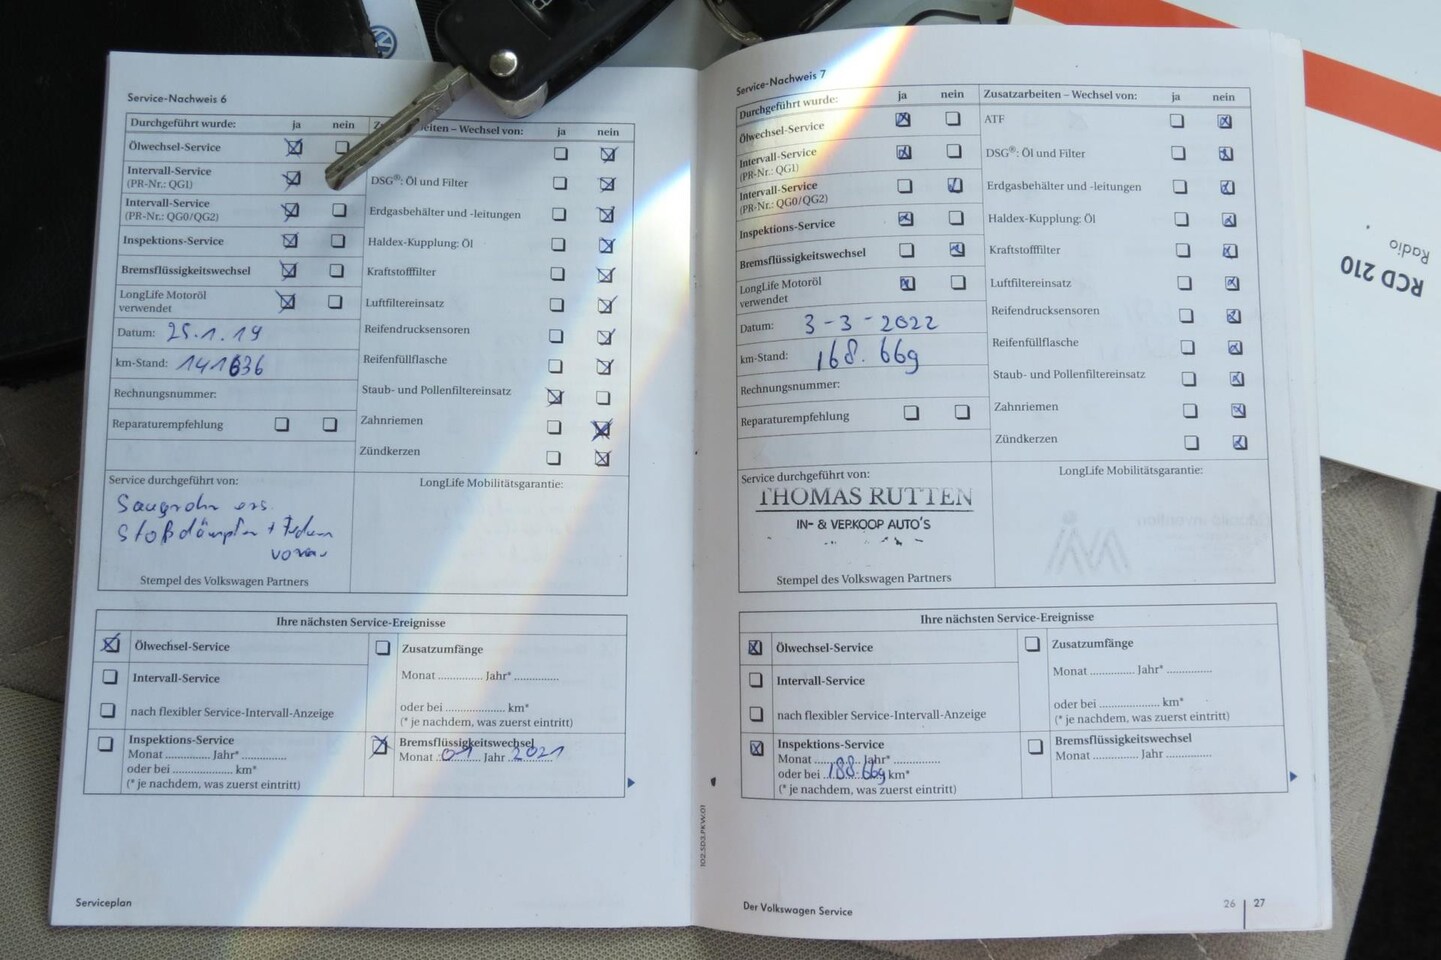 Service-Nachweis 6
Durchgeführt wurde: ja nein
Ölwechsel-Service
Intervall-Service
(PR-Nr.: QG1)
Intervall-Service
(PR-Nr.: QG0/QG2)
Inspektions-Service
Bremsflüssigkeitswechsel
LongLife Motoröl
verwendet
Datum: 25.1.19
km-Stand: 141636
Rechnungsnummer:
Reparaturempfehlung
Wechsel von: ja nein
DSG®: Öl und Filter
Erdgasbehälter und -leitungen
Haldex-Kupplung: Öl
Kraftstofffilter
Luftfiltereinsatz
Reifendrucksensoren
Reifenfüllflasche
Staub- und Pollenfiltereinsatz
Zahnriemen
Zündkerzen
Service durchgeführt von:
Saugrohr ers.
Stoßdämpfer + Federn
Stempel des Volkswagen Partners
LongLife Mobilitätsgarantie:
Ihre nächsten Service-Ereignisse
Ölwechsel-Service
Intervall-Service
nach flexibler Service-Intervall-Anzeige
Inspektions-Service
Monat ............. Jahr* .............
oder bei .................. km*
(* je nachdem, was zuerst eintritt)
Zusatzumfänge
Monat ............. Jahr* .............
oder bei .................. km*
(* je nachdem, was zuerst eintritt)
Bremsflüssigkeitswechsel
Monat 01 Jahr 2021
Serviceplan
Service-Nachweis 7
Durchgeführt wurde: ja nein
Ölwechsel-Service
Intervall-Service
(PR-Nr.: QG1)
Intervall-Service
(PR-Nr.: QG0/QG2)
Inspektions-Service
Bremsflüssigkeitswechsel
LongLife Motoröl
verwendet
Datum: 3-3-2022
km-Stand: 168.669
Rechnungsnummer:
Reparaturempfehlung
Zusatzarbeiten – Wechsel von: ja nein
ATF
DSG®: Öl und Filter
Erdgasbehälter und -leitungen
Haldex-Kupplung: Öl
Kraftstofffilter
Luftfiltereinsatz
Reifendrucksensoren
Reifenfüllflasche
Staub- und Pollenfiltereinsatz
Zahnriemen
Zündkerzen
Service durchgeführt von:
THOMAS RUTTEN
IN- & VERKOOP AUTO'S
Stempel des Volkswagen Partners
LongLife Mobilitätsgarantie:
Ihre nächsten Service-Ereignisse
Ölwechsel-Service
Intervall-Service
nach flexibler Service-Intervall-Anzeige
Inspektions-Service
Monat ............. Jahr* .............
oder bei 188.669 km*
(* je nachdem, was zuerst eintritt)
Zusatzumfänge
Monat ............. Jahr* .............
oder bei .................. km*
(* je nachdem, was zuerst eintritt)
Bremsflüssigkeitswechsel
Monat ............. Jahr .............
102.5D3.PKW.01
Der Volkswagen Service
26 27
Radio
RCD 210